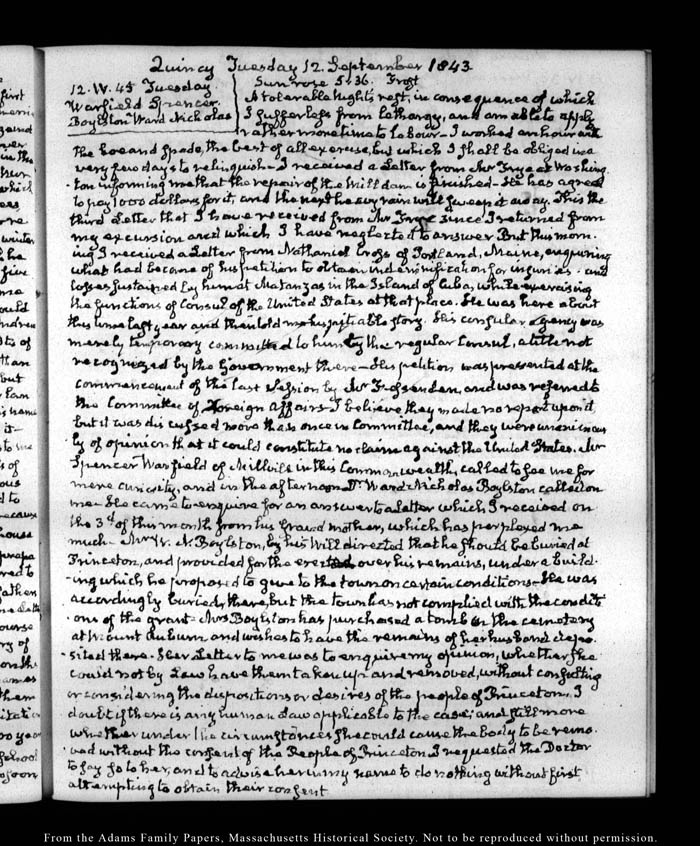 Quincy Tuesday 12. September 1843.
12. IV. 45 Tuesday
Warfield Spencer
Boylston Ward Nicholas
Sun rose 5.36. Frost
A tolerable night's rest, in consequence of which
I suffer less from lethargy, and am able to apply
rather more time to labour – I worked an hour with
the hoe and spade, the best of all exercise, but which I shall be obliged in a
very few days to relinquish – I received a Letter from Mr Frye at Washing
ton informing me that the repair of the Mill dam is finished – He has agreed
to pay 1000 dollars for it, and the next heavy rain will sweep it away. This is the
third Letter that I have received from Mr Frye since I returned from
my excursion and which I have neglected to answer. But this morn
ing I received a Letter from Nathaniel Cross of Portland, Maine, enquiring
what had become of his petition to obtain indemnification for injuries and
losses sustained by him at Matanzas in the Island of Cuba, while exercising
the functions of Consul of the United States at that place. He was here about
this time last year and then told me his pitiable story. His consular agency was
merely temporary committed to him by the regular Consul, a title not
recognized by the Government there – His petition was presented at the
commencement of the last Session by Mr Fessenden, and was referred to
the Committee of Foreign Affairs – I believe they made no report upon it,
but it was discussed more than once in Committee, and they were unanimous
ly of opinion that it could constitute no claim against the United States. Mr
Spencer Warfield of Millville in this Commonwealth, called to see me for
mere curiosity, and in the afternoon Dr Ward Nicholas Boylston called on
me. He came to enquire for an answer to a Letter which I received on
the 3d of this month from his Grand mother, which has perplexed me
much – Mr W. N. Boylston, by his Will directed that he should be buried at
Princeton, and provided for the erection over his remains, under a build
ing which he proposed to give to the town on certain conditions – He was
accordingly buried there, but the town has not complied with the condit
ions of the grant – Mrs Boylston has purchased a tomb in the cemetery
at Mount Auburn and wishes to have the remains of her husband depo
sited there. Her Letter to me was to enquire my opinion, whether she
could not by Law have them taken up and removed, without consulting
or considering the dispositions or desires of the people of Princeton. I
doubt if there is any human Law applicable to the case; and still more
whether under the circumstances she could cause the body to be remo
ved without the consent of the People of Princeton. I requested the Doctor
to say so to her, and to advise her in my name to do nothing without first
attempting to obtain their consent
From the Adams Family Papers, Massachusetts Historical Society. Not to be reproduced without permission.